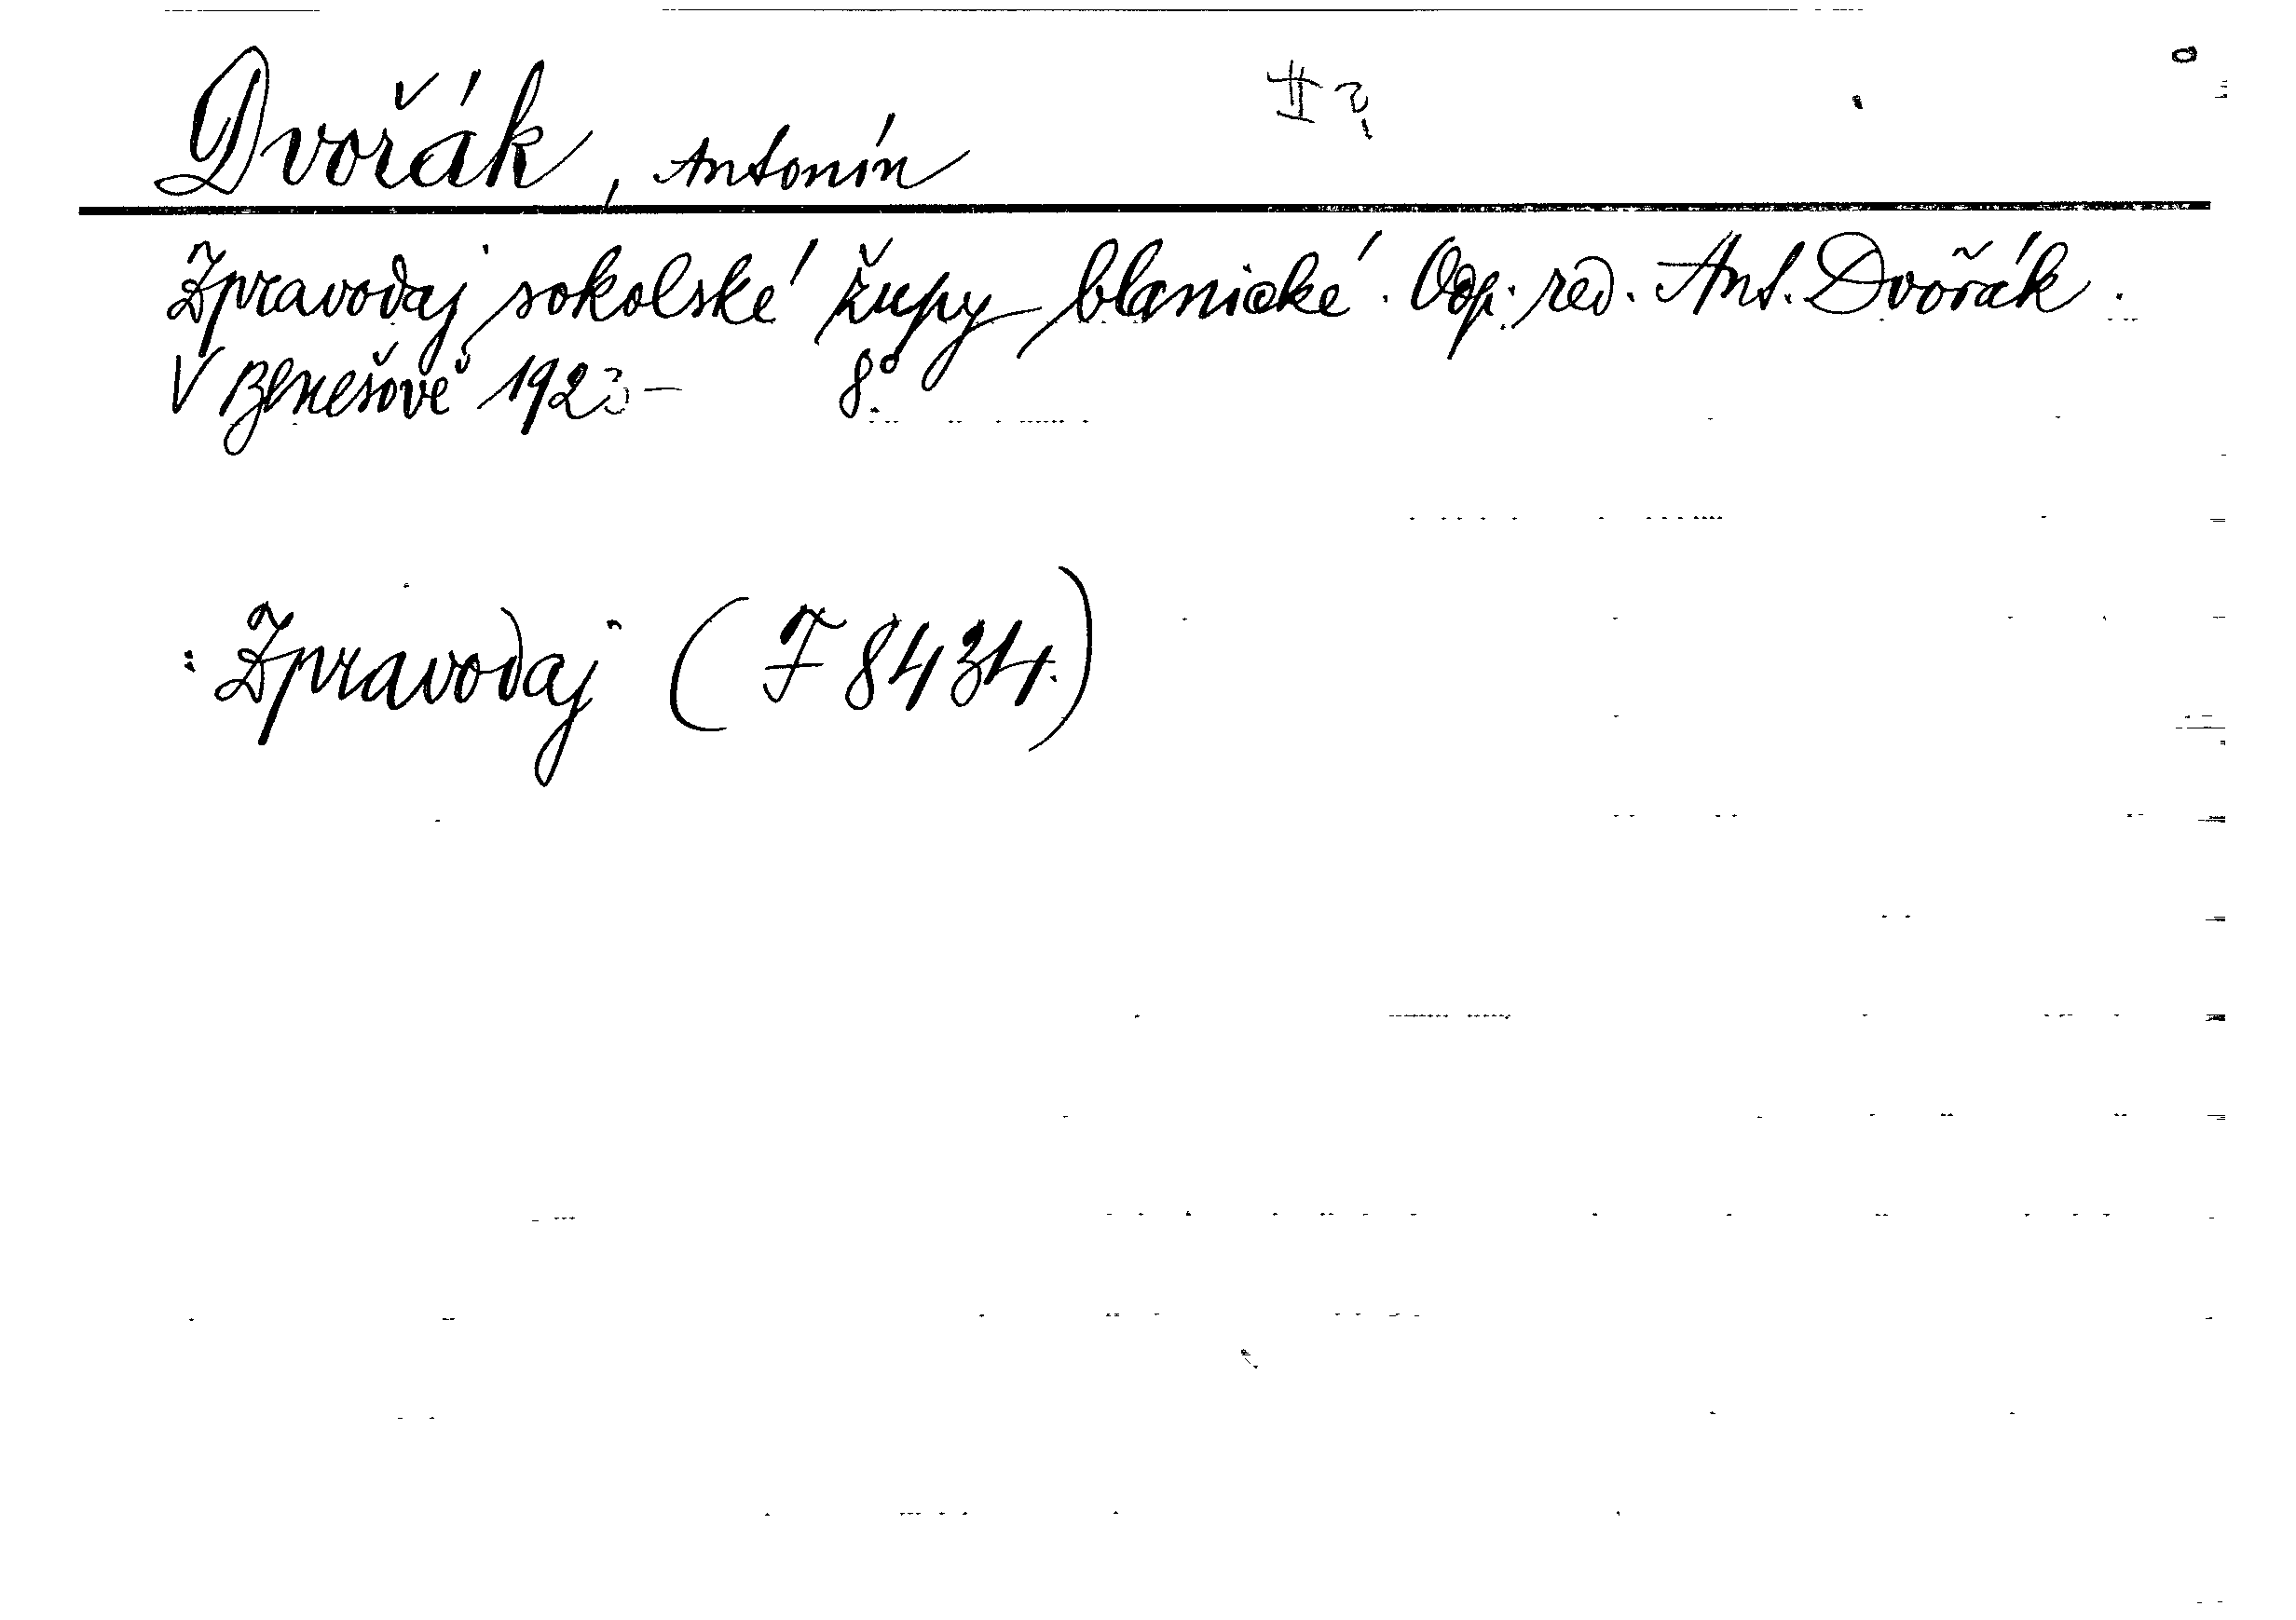 Dvořák, Antonín
Zpravodaj sokolské župy blanické. Odp. red. Ant. Dvořák.
V Benešově 1923- 8°
: Zpravodaj (F 8434.)